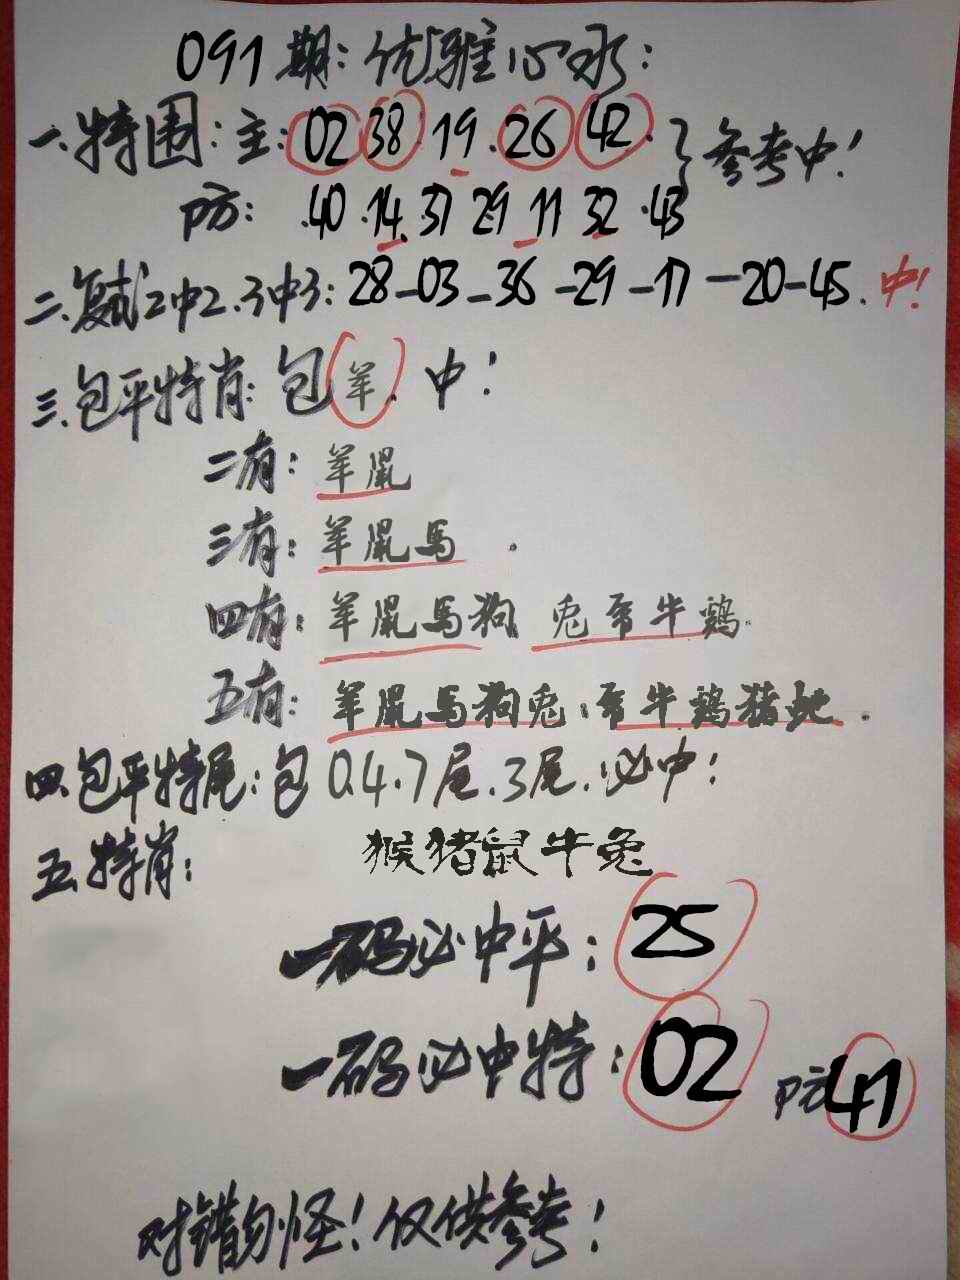 091期:优雅心水:
一.特围:主:02 38 19.26 42.}参考中!
防: .40 .14.37 29 .11 32 .43
二.复式2中2.3中3:28-03-36-29-17-20-45.中!
三.包平特肖:包羊.中!
二有:羊鼠
三有:羊鼠馬.
四有:羊鼠馬狗 兔帝牛鷄.
五有:羊鼠馬狗兔.帝牛鷄猪蛇.
四.包平特尾:包0.4.7尾.3尾.必中!
五.特肖: 猴猪鼠牛兔
一码必中平:25
一码必中特:02 防41
对错勿怪!仅供参考!